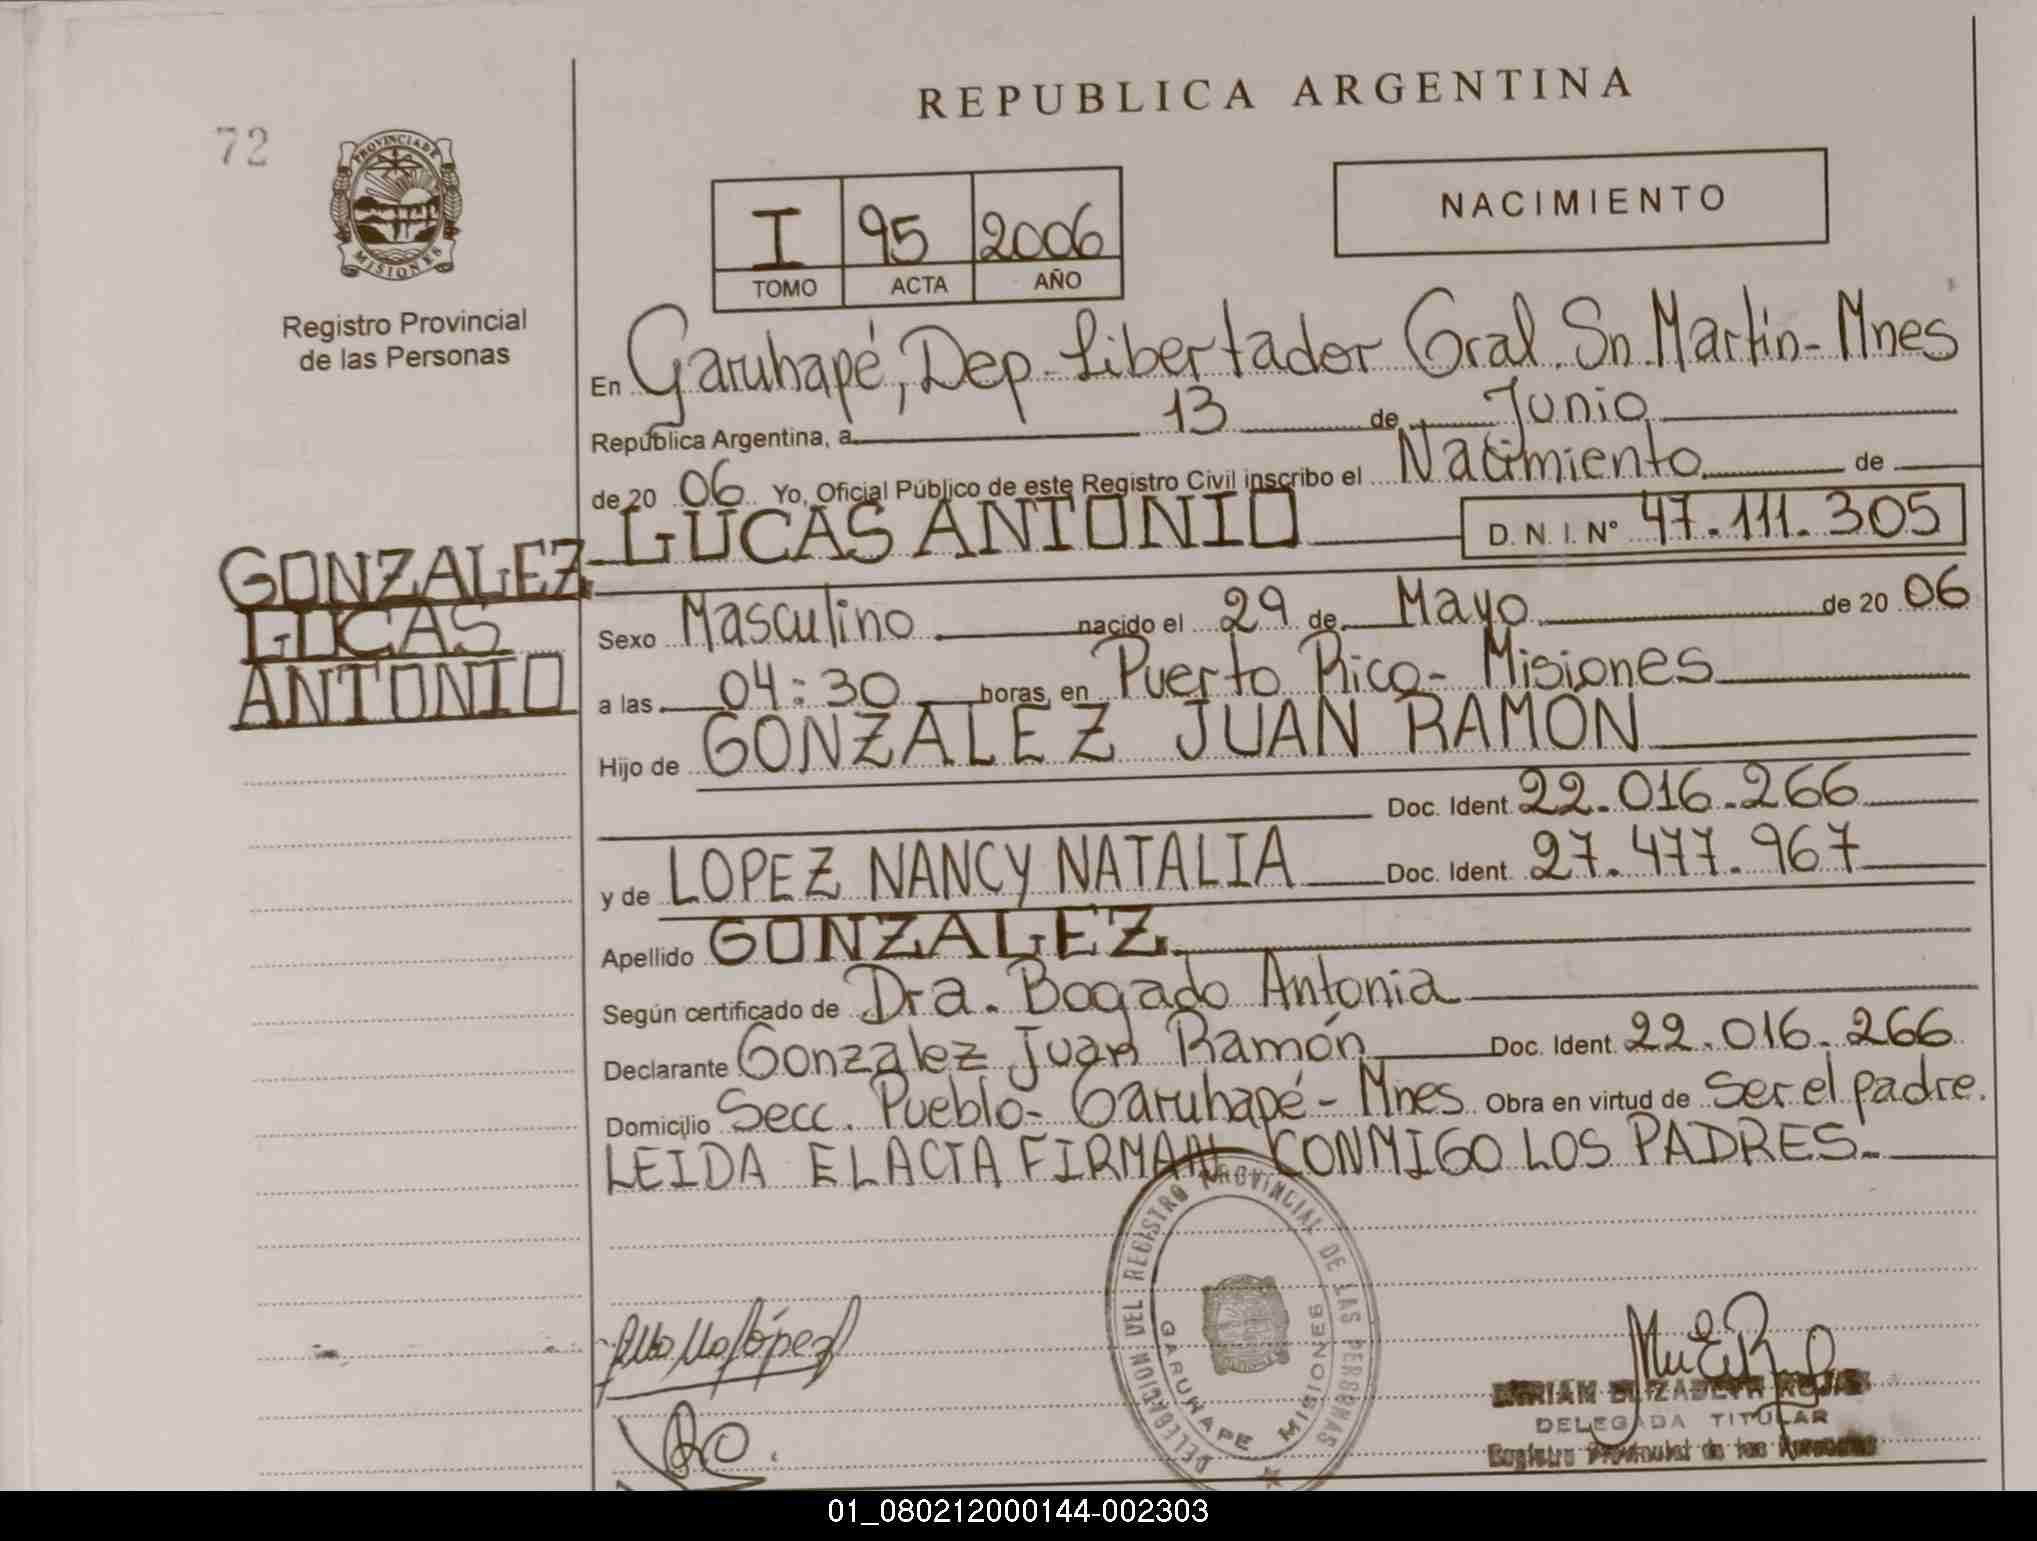 REPUBLICA ARGENTINA
72
PROVINCIA DE
MISIONES
Registro Provincial
de las Personas
NACIMIENTO
I 95 2006
TOMO ACTA AÑO
En Garuhapé, Dep. Libertador Gral. Sn. Martín - Mnes
Republica Argentina, a 13 de Junio
de 20 06 Yo, Oficial Público de este Registro Civil inscribo el Nacimiento de
LUCAS ANTONIO D. N. I. N° 47.111.305
GONZALEZ
LUCAS
ANTONIO
Sexo Masculino nacido el 29 de Mayo de 20 06
a las 04:30 horas, en Puerto Rico - Misiones
Hijo de GONZALEZ JUAN RAMON
Doc. Ident. 22.016.266
y de LOPEZ NANCY NATALIA Doc. Ident. 27.477.967
Apellido GONZALEZ
Según certificado de Dra. Bogado Antonia
Declarante Gonzalez Juan Ramón Doc. Ident. 22.016.266
Domicilio Secc. Pueblo - Garuhapé - Mnes Obra en virtud de ser el padre.
LEIDA EL ACTA FIRMAN CONMIGO LOS PADRES.
DELEGACION DEL REGISTRO PROVINCIAL DE LAS PERSONAS
GARUHAPE MISIONES
López
MIRIAM ELIZABETH ROJAS
DELEGADA TITULAR
Registro Provincial de las Personas
01_080212000144-002303